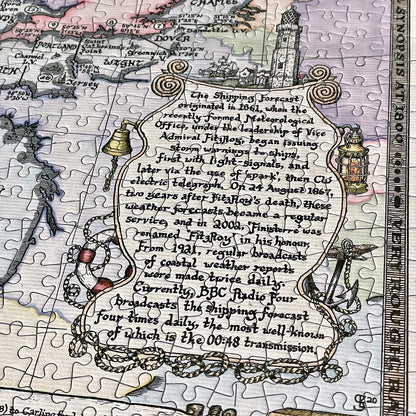 PORTLAND
WIGHT
DOVER
Greenwich
SYNOPSIS AT 1800
VERY ROUGH
The Shipping Forecast
originated in 1861, when the
recently formed Meteorological
Office, under the leadership of Vice
Admiral FitzRoy, began issuing
storm warnings to ships,
first with light-signals, and
later via the use of 'spark', then
electric telegraph. On 24 August 1867,
two years after FitzRoy's death, these
weather forecasts became a regular
service, and in 2002, 'Finisterre' was
renamed 'FitzRoy' in his honour.
From 1921, regular broadcasts
of coastal weather reports
were made twice daily.
Currently, BBC Radio Four
broadcasts the Shipping Forecast
four times daily, the most well-known
of which is the 00:48 transmission.
20
to Carling